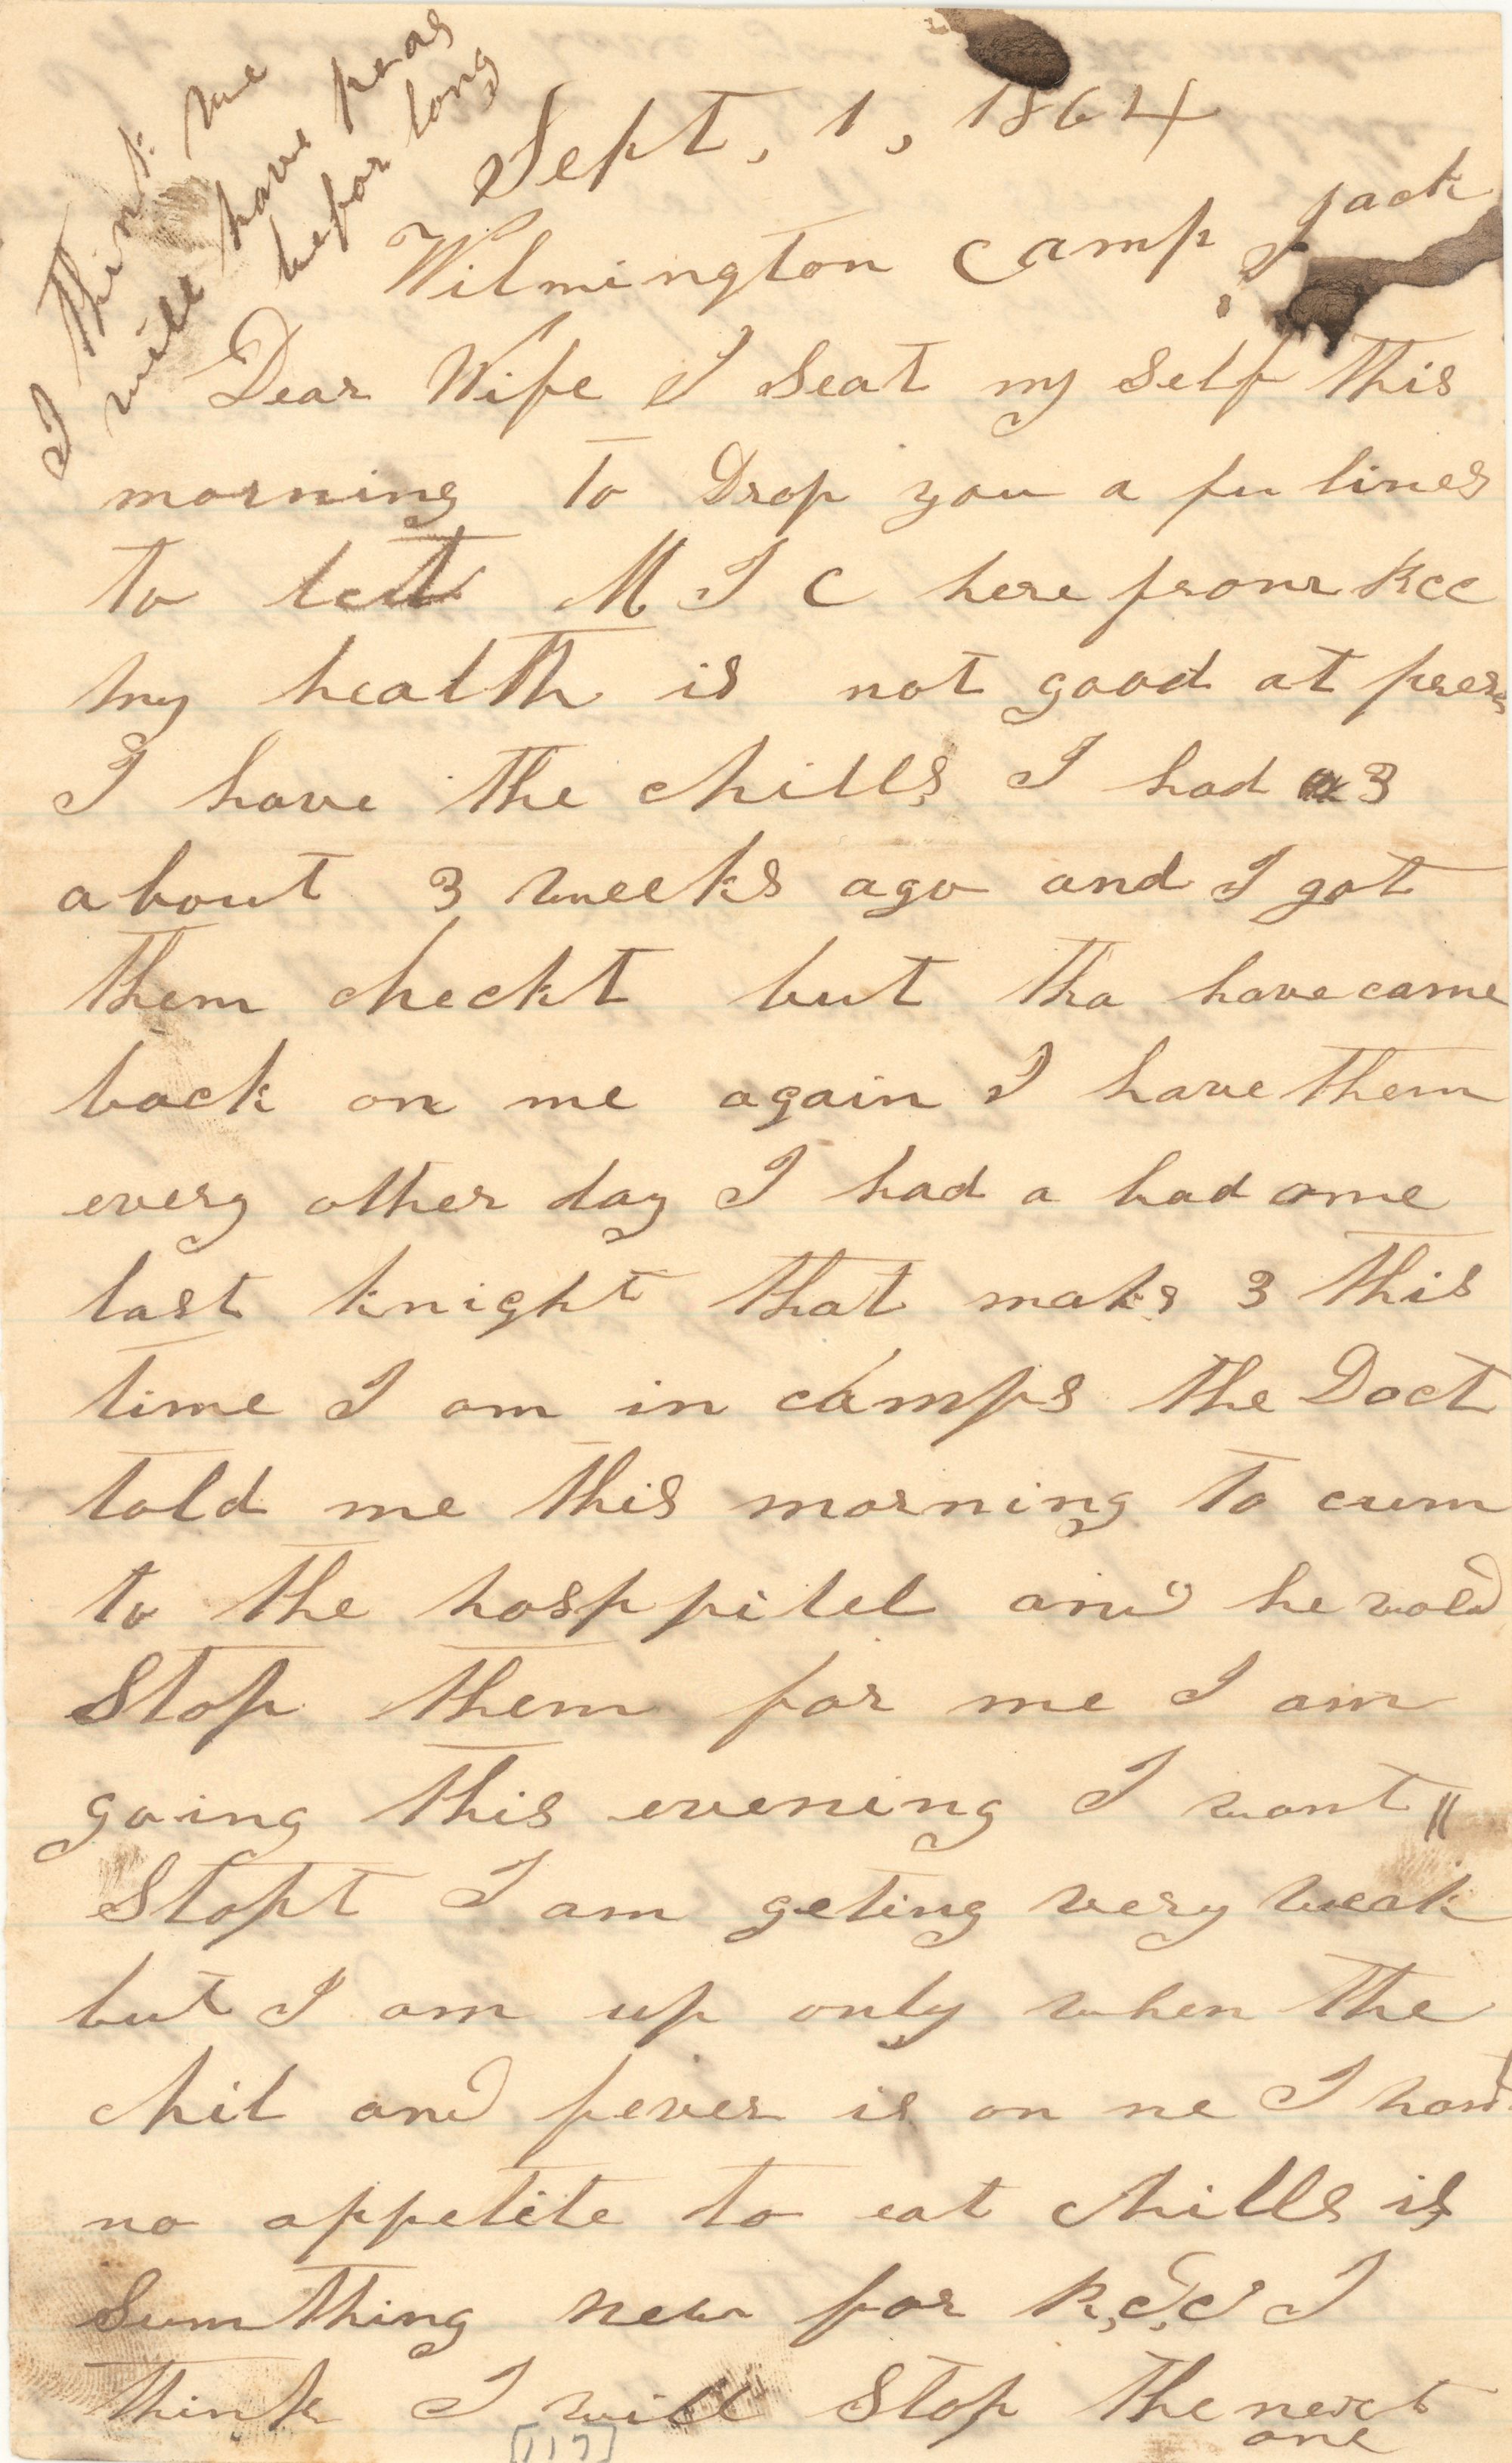 I think we
will have peas
befor long
Sept, 1, 1864
Wilmington Camp Jack
Dear Wife I Seat my Self this
morning to Drop you a fu lines
to let M J C here from RCC
my health is not good at pres
I have the chills I had 3
about 3 weeks ago and I got
them checkt but tha have came
back on me again I have them
every other day I had a bad one
last knight that maks 3 this
time I am in camps the Doct
told me this morning to cum
to the hosppitel and he wold
Stop them for me I am
going this evening I want "
Stopt I am geting very weak
but I am up only when the
chil and fever is on me I hav
no appetite to eat chills is
Sumthing new for R,C,C I
think I will Stop the next
one
[117]